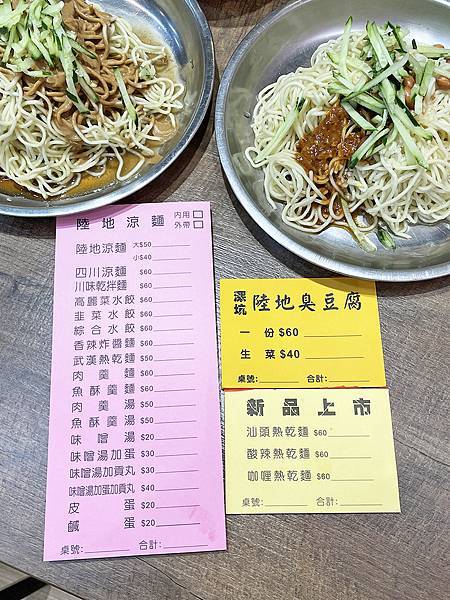 陸地涼麵 內用□
外帶□
陸地涼麵 大$50
小$40
四川涼麵 $60
川味乾拌麵 $60
高麗菜水餃 $60
韭菜水餃 $60
綜合水餃 $60
香辣炸醬麵 $60
武漢熱乾麵 $50
肉羹麵 $60
魚酥羹麵 $60
肉羹湯 $50
魚酥羹湯 $50
味噌湯 $20
味噌湯加蛋 $30
味噌湯加貢丸 $30
味噌湯加蛋加貢丸 $40
皮蛋 $20
鹹蛋 $20
桌號:______ 合計:______
深坑 陸地臭豆腐
一份 $60
生菜 $40
桌號:______ 合計:______
新品上市
汕頭熱乾麵 $60
酸辣熱乾麵 $60
咖哩熱乾麵 $60
桌號:______ 合計:______